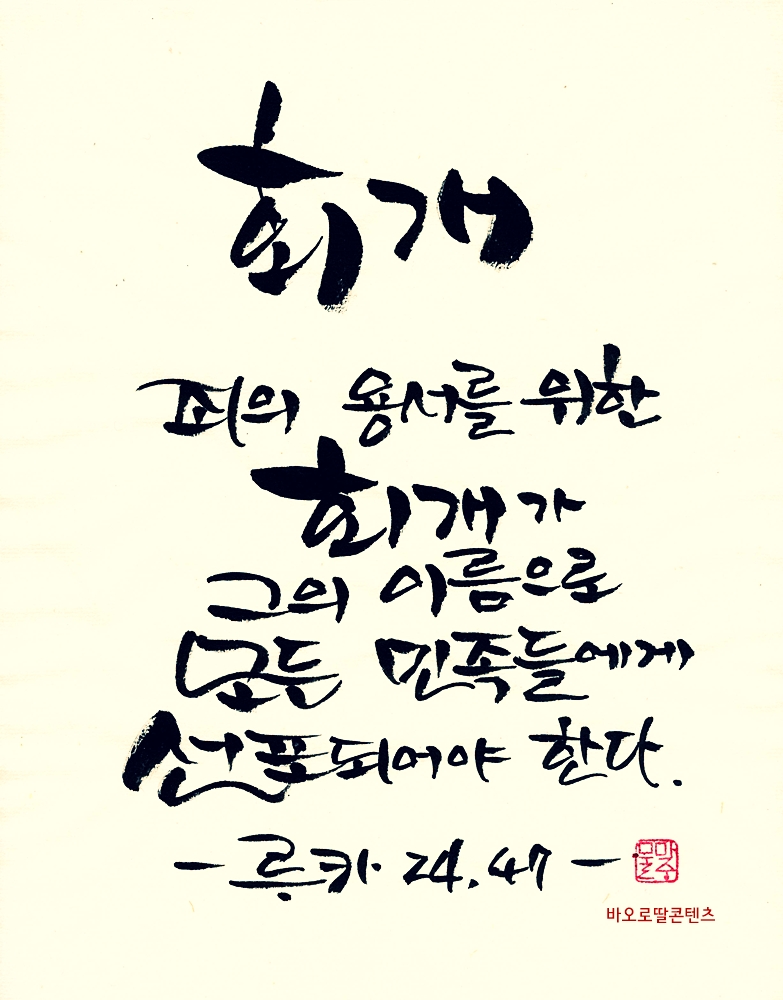 회개
죄의 용서를 위한
회개가
그의 이름으로
모든 민족들에게
선포되어야 한다.
- 루카 24,47 -
바오로딸콘텐츠